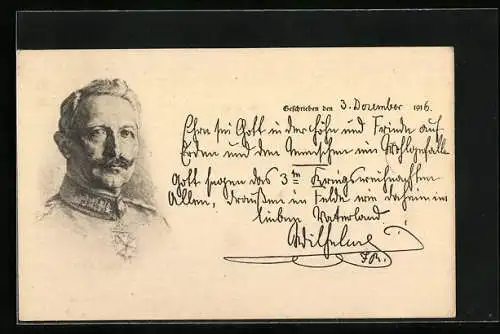 Geschrieben den 3. Dezember 1916.
Ehre sei Gott in der Höhe und Friede auf
Erden und den Menschen ein Wohlgefall
Gott segne das 3te Kriegsweihnachten
Allen, draußen im Felde wie daheim im
lieben Vaterland.
Wilhelm
I.R.